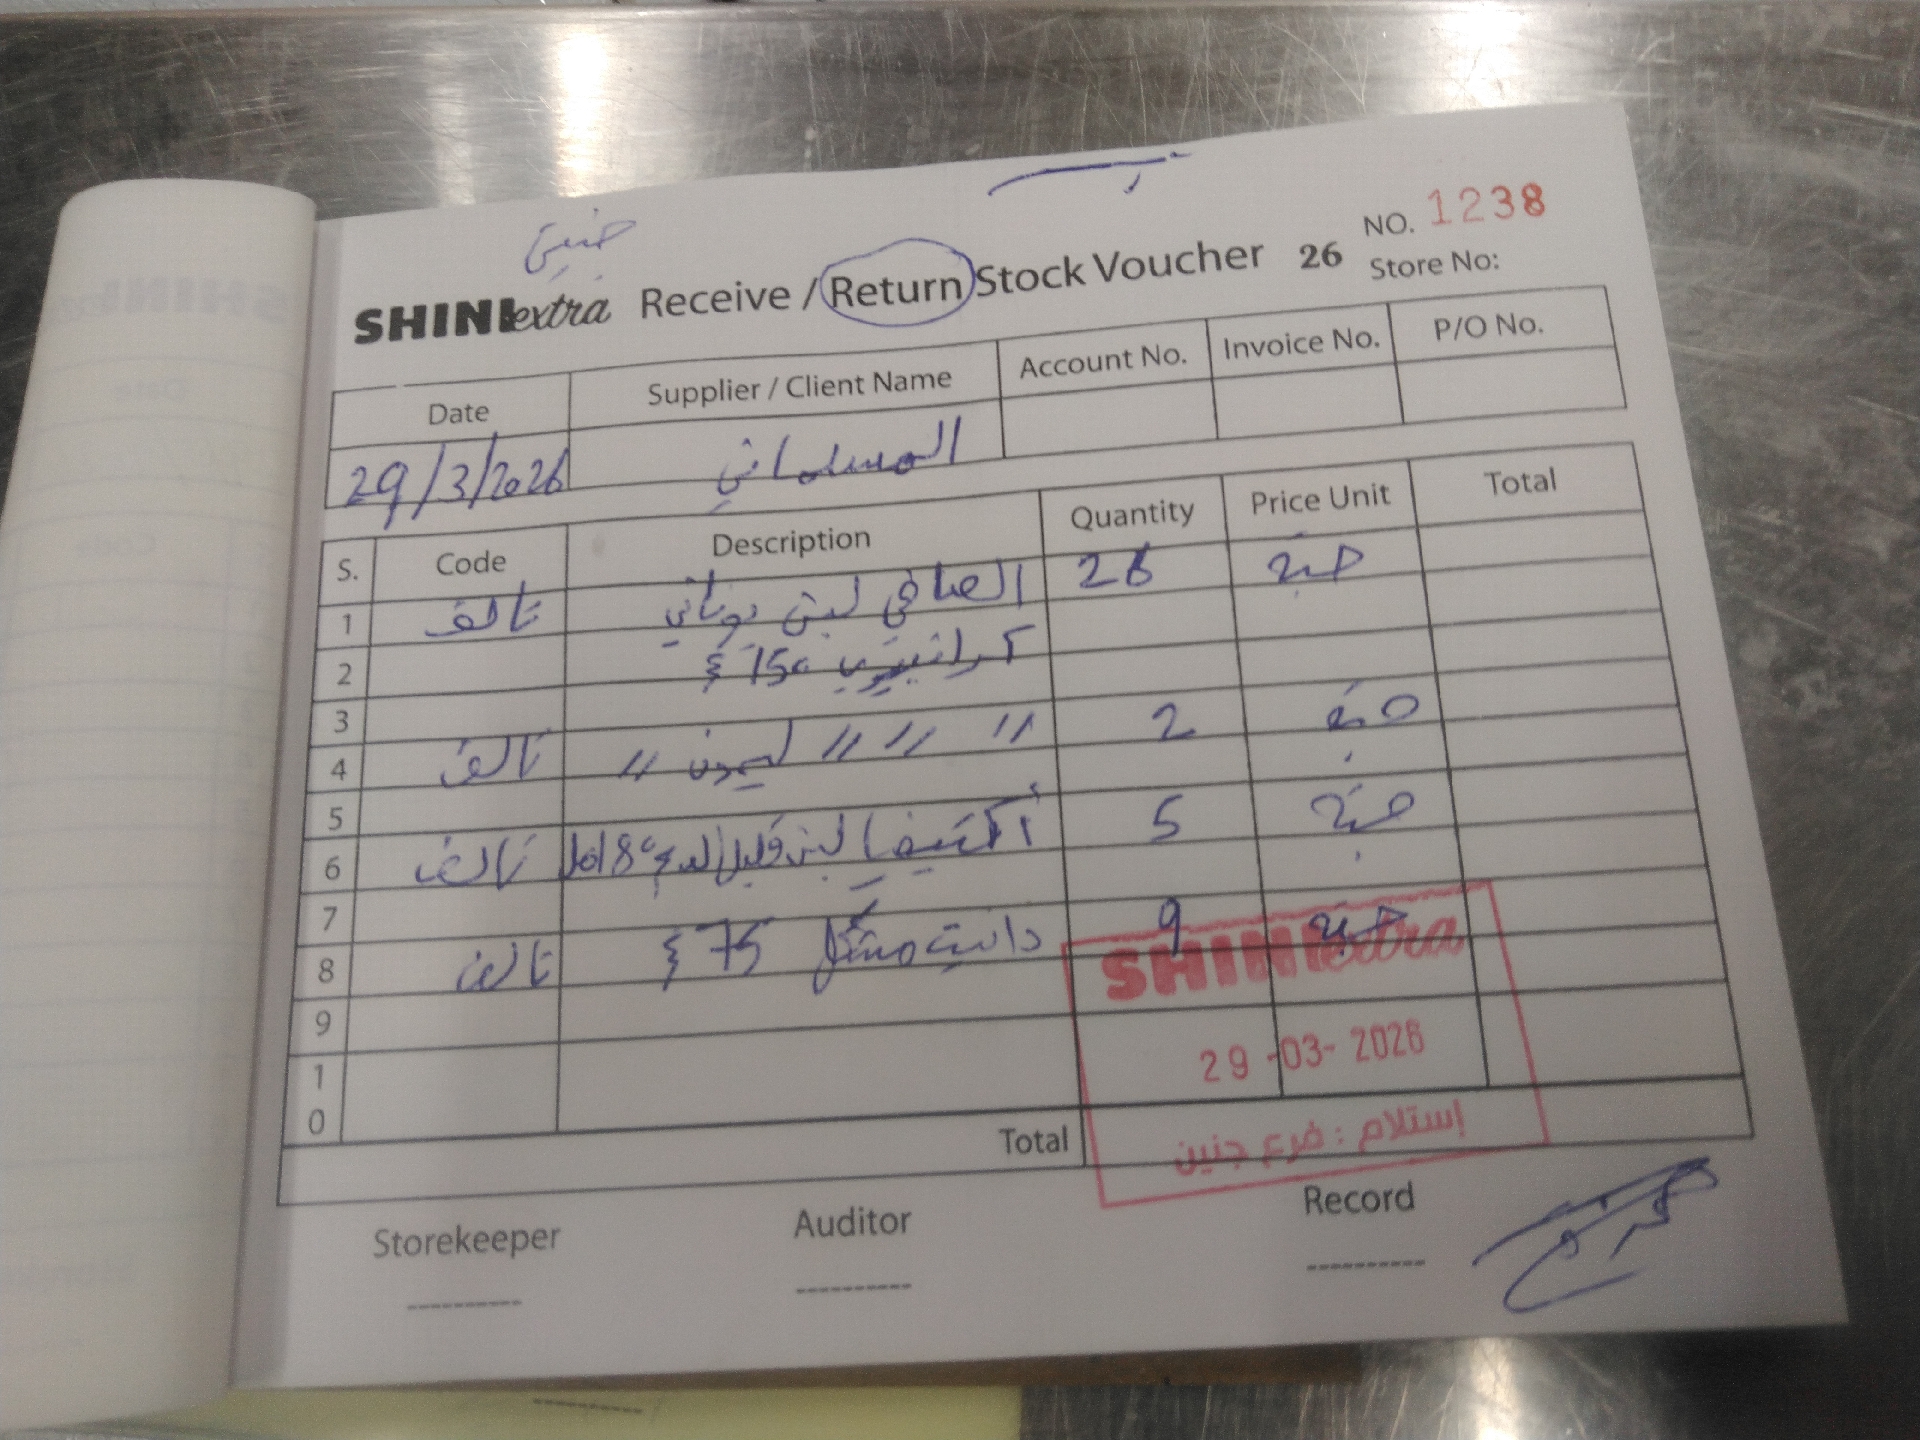 جنين
NO. 1238
SHINI extra Receive / Return Stock Voucher 26 Store No:
Date Supplier / Client Name Account No. Invoice No. P/O No.
29/3/2026 المسلماني
S. Code Description Quantity Price Unit Total
1 تالف الصافي لبن يوناني 26 حبة
2 كرانبيري 150 غ
3
4 تالف " " " ليمون " 2 حبة
5
6 تالف أكتيفيا لبن قليل الدسم 5 حبة
7
8 تالف دانيت 75 غ 9 حبة
9
10
Total
SHINI extra
29-03-2026
إستلام : فرع جنين
Storekeeper Auditor Record